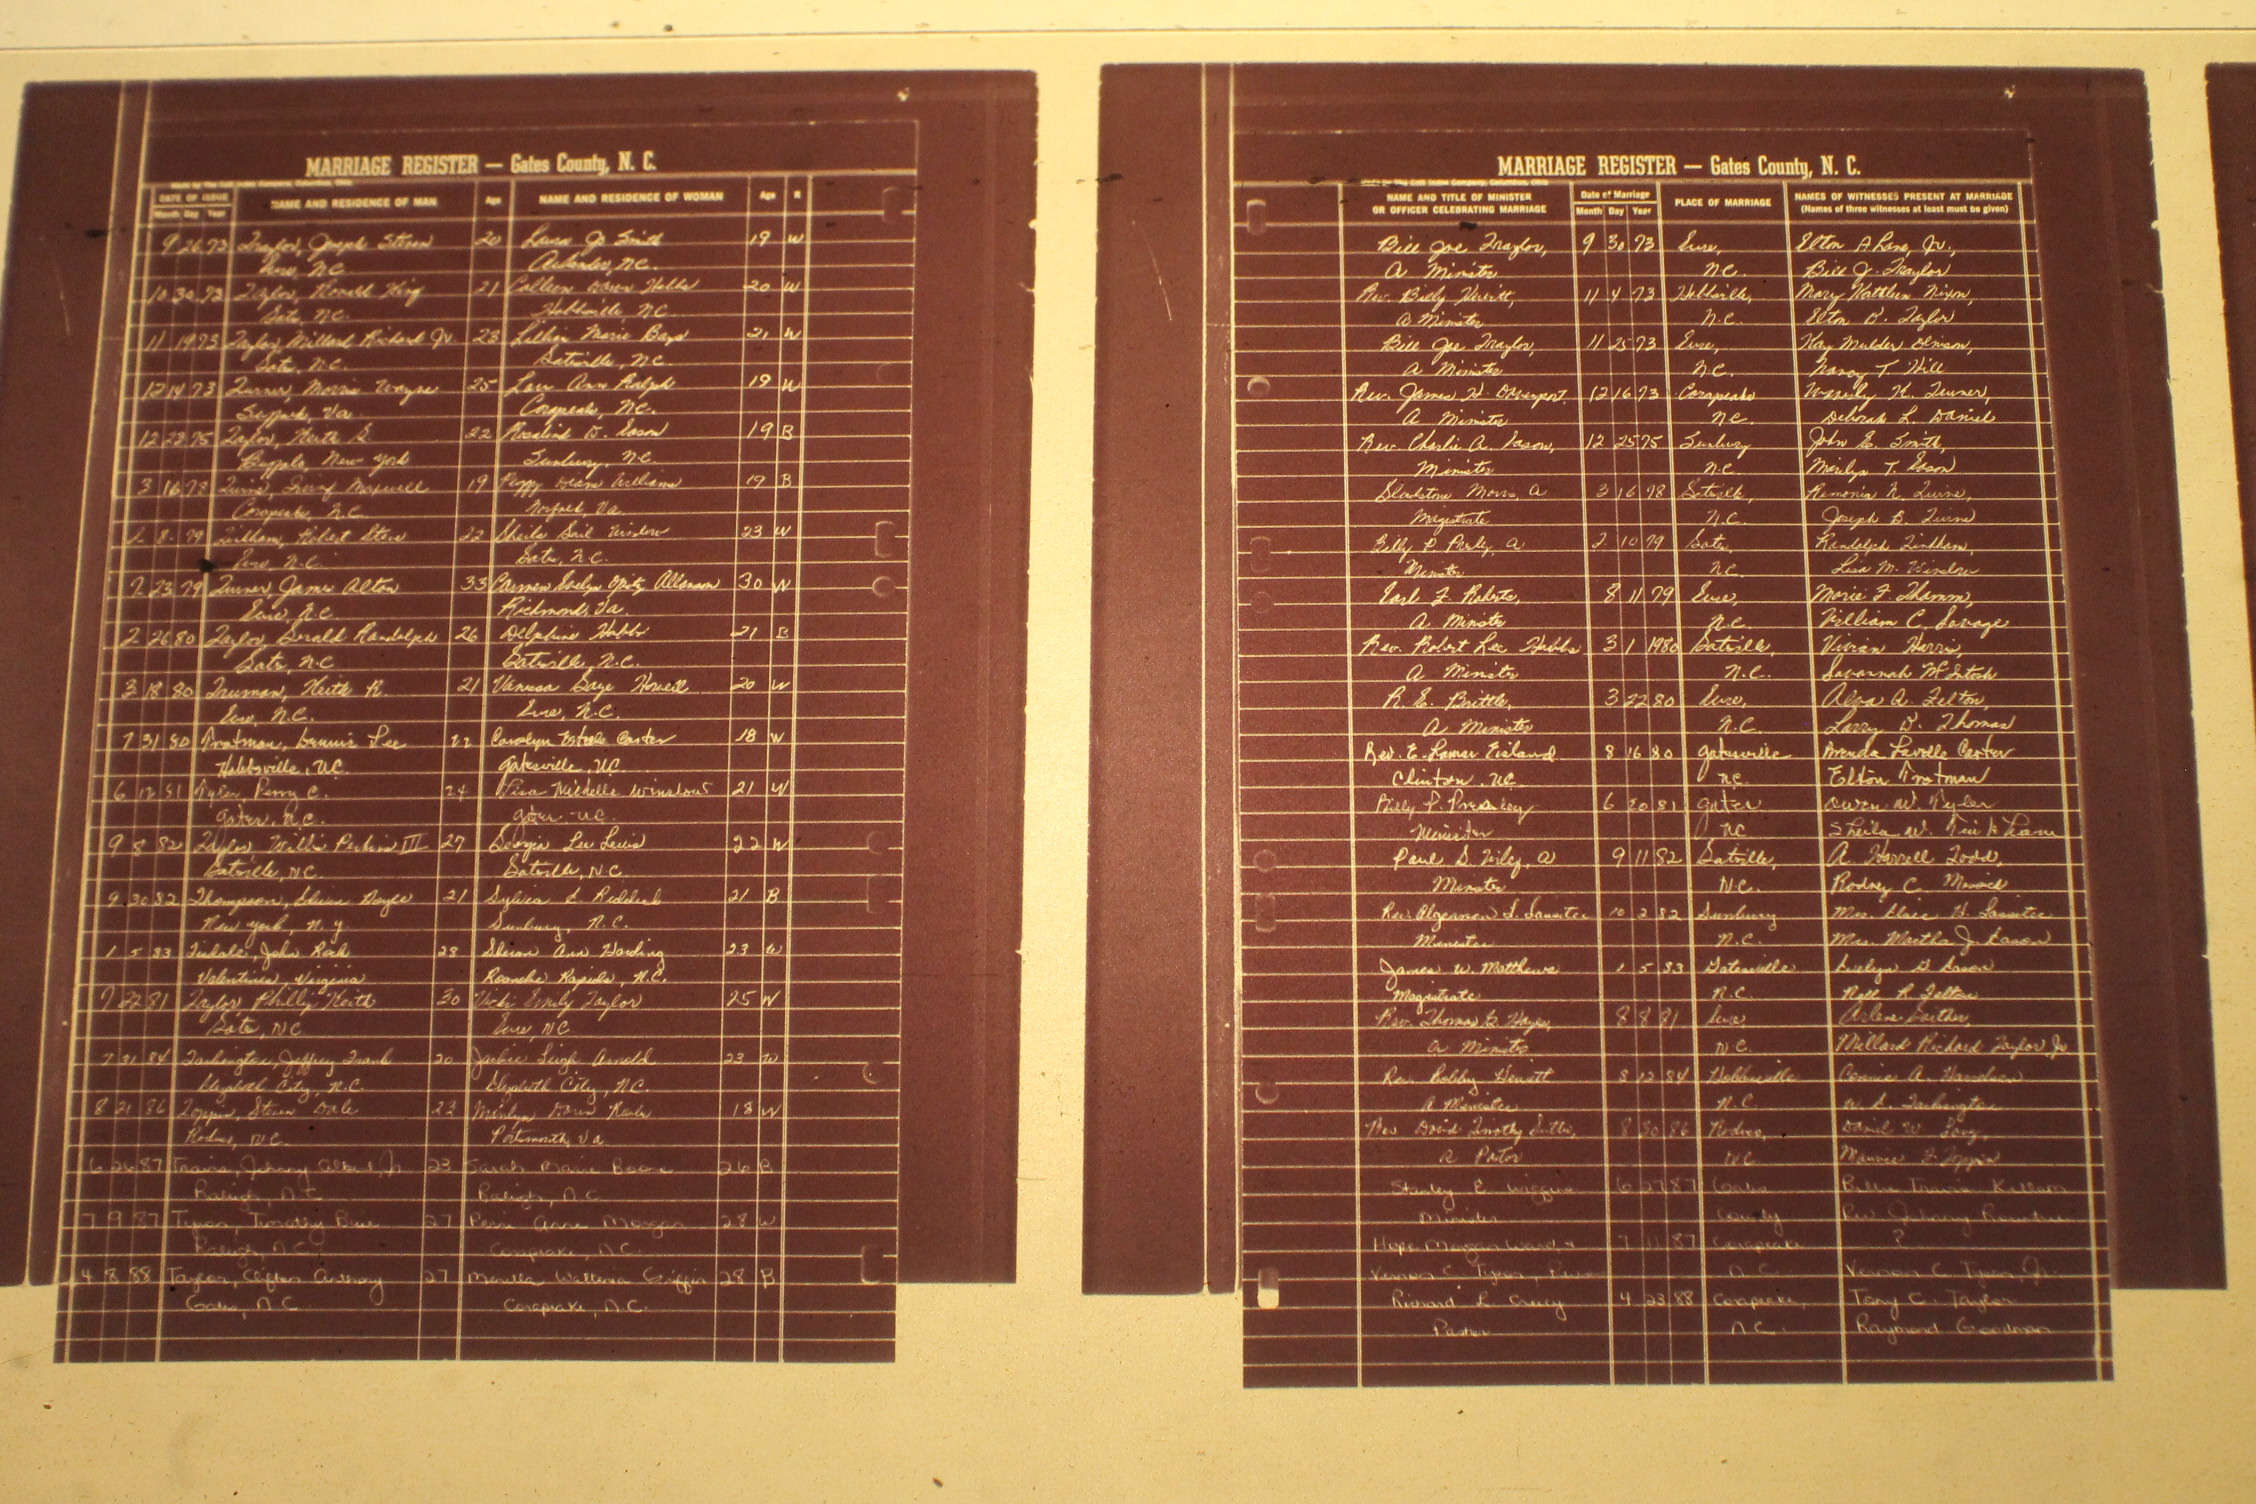 MARRIAGE REGISTER — Gates County, N. C.
DATE OF ISSUE
Month Day Year
NAME AND RESIDENCE OF MAN
Age
NAME AND RESIDENCE OF WOMAN
Age
R
9 26 73 Traylor, Joseph Steven 20 Laura Jo Smith 19 W
Eure, N.C. Aulander, N.C.
10 30 73 Taylor, Ronald King 21 Colleen Dawn Hobbs 20 W
Gates, N.C. Hobbsville, N.C.
11 19 73 Taylor, Millard Richard Jr 23 Lillian Marie 21 W
Gates, N.C. Gatesville, N.C.
12 14 73 Turner, Morris Wayne 25 Lou Ann Ralph 19 W
Suffolk, Va. Corapeake, N.C.
12 22 75 Taylor, Keith 22 Rosalind D. Eason 19 B
Buffalo, New York Sunbury, N.C.
3 16 78 Maxwell 19 Peggy Deane Williams 19 B
Corapeake, N.C. Norfolk, Va.
8 79 Robert Steve 22 Sheila Gail Winslow 23 W
Eure, N.C. Gates, N.C.
7 23 79 Turner, James Alton 33 Carmen Evelyn Allanson 30 W
Eure, N.C. Richmond, Va.
2 26 80 Taylor, Gerald Randolph 26 Delphine Hobbs 21 B
Gates, N.C. Gatesville, N.C.
3 18 80 Truman, Keith R. 21 Vanessa Gaye Howell 20 W
Eure, N.C. Eure, N.C.
7 31 80 Trotman, Dennis Lee 22 Carolyn Carter 18 W
Hobbsville, N.C. Gatesville, N.C.
6 12 81 Tyler, Perry C. 24 Lisa Michelle Winslow 21 W
Gates, N.C. Gates N.C.
9 8 82 Taylor, Willis Perkins III 27 Georgia Lee Lewis 22 W
Gatesville, N.C. Gatesville, N.C.
9 30 82 Thompson, Doyle 21 Sylvia L. Riddick 21 B
New York, N.Y. Sunbury, N.C.
1 5 83 John 28 Sharon Ann Harding 23 W
Valentines, Virginia Roanoke Rapids, N.C.
7 22 81 Taylor, Phillip Keith 30 Vicki Emily Taylor 25 W
Gates, N.C. Eure, N.C.
7 31 84 Tarkington, Jeffrey Frank 20 Jackie Leigh Arnold 23 W
Elizabeth City, N.C. Elizabeth City, N.C.
8 21 86 Toppin, Steven Dale 23 Marilyn Dawn 18 W
Roduco, N.C. Portsmouth, Va.
6 26 87 Travis, Johnny Albert, Jr. 23 Sarah Marie Boone 26 B
Raleigh, N.C. Raleigh, N.C.
7 9 87 Tyson, Timothy 27 Perri Anne Morgan 28 W
Raleigh, N.C. Corapeake, N.C.
4 8 88 Taylor, Clifton Anthony 27 Walteria Griffin 28 B
Gates, N.C. Corapeake, N.C.
MARRIAGE REGISTER — Gates County, N. C.
NAME AND TITLE OF MINISTER
OR OFFICER CELEBRATING MARRIAGE
Date of Marriage
Month Day Year
PLACE OF MARRIAGE
NAMES OF WITNESSES PRESENT AT MARRIAGE
(Names of three witnesses at least must be given)
Bill Joe Traylor, 9 30 73 Eure, Elton A Lane, Jr.,
A Minister N.C. Bill J. Traylor
Rev. Billy Hewitt, 11 4 73 Hobbsville, Mary Kathleen Nixon,
A Minister N.C. Elton Taylor
Bill Joe Traylor, 11 25 73 Eure, Kay Mulder Denison,
A Minister N.C. Nancy T. Hill
Rev. James H. Davenport, 12 16 73 Corapeake Waverly K. Turner,
A Minister N.C. Deborah L. Daniel
Rev. Charlie A. Eason, 12 25 75 Sunbury John E. Smith,
Minister N.C. Marilyn T. Eason
Gladstone Morris, A 3 16 78 Gatesville,
Magistrate N.C. Joseph
Billy P. A 2 10 79 Gates, Randolph
Minister N.C. Lisa M. Winslow
Earl F. Roberts, 8 11 79 Eure, Marie F. Thamm,
A Minister N.C. William C. Savage
Rev. Robert Lee Hobbs 3 1 1980 Gatesville, Vivian Harris,
A Minister N.C. Savannah McIntosh
R. E. Brittle, 3 22 80 Eure, Alva A. Felton,
A Minister N.C. Larry D. Thomas
Rev. E. Lamar Eisland 8 16 80 Gatesville Brenda Carter
Clinton, N.C. N.C. Elton Trotman
Billy P. Presley 6 20 81 Gates Owen W. Tyler
Minister N.C. Sheila W.
Paul G. Wiley, A 9 11 82 Gatesville, A. Harrell Todd,
Minister N.C. Rodney C.
Rev. Algernon S. Lassiter 10 2 82 Sunbury Mrs. H. Lassiter
Minister N.C. Mrs. Martha J. Eason
James W. Matthews 1 5 83 Gatesville Evelyn G. Eason
Magistrate N.C. Nell R. Felton
Rev. Thomas G. Hayes, 8 8 81 Eure Arlene
A Minister N.C. Millard Richard Taylor Jr
Rev. Bobby Hewitt 8 12 84 Hobbsville Connie A.
A Minister N.C. Tarkington
Rev David Timothy 8 30 86 Roduco, Daniel W.
A Pastor N.C. Maurice F. Toppin
Stanley E. Wiggins 6 27 87 Gates Billie Travis Killam
Minister County Rev. Johnny
Hope Morgan Ward, + 7 11 87 Corapeake ?
Vernon C. Tyson, N.C. Vernon C. Tyson, Jr.
Richard L. Creecy 4 23 88 Corapeake, Tony C. Taylor
Pastor N.C. Raymond Goodman